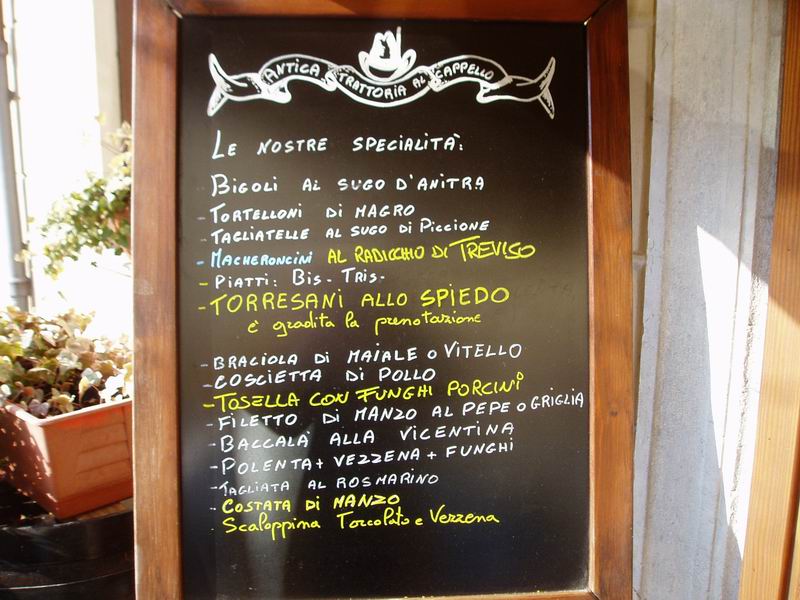 ANTICA TRATTORIA AL CAPPELLO
LE NOSTRE SPECIALITÀ:
BIGOLI AL SUGO D'ANITRA
- TORTELLONI DI MAGRO
- TAGLIATELLE AL SUGO DI PICCIONE
- MACHERONCINI AL RADICCHIO DI TREVISO
- PIATTI: BIS - TRIS -
- TORRESANI ALLO SPIEDO
è gradita la prenotazione
- BRACIOLA DI MAIALE O VITELLO
- COSCIETTA DI POLLO
- TOSELLA CON FUNGHI PORCINI
- FILETTO DI MANZO AL PEPE O GRIGLIA
- BACCALÀ ALLA VICENTINA
- POLENTA + VEZZENA + FUNGHI
- TAGLIATA AL ROSMARINO
- COSTATA DI MANZO
- Scaloppina Torcolato e Vezzena